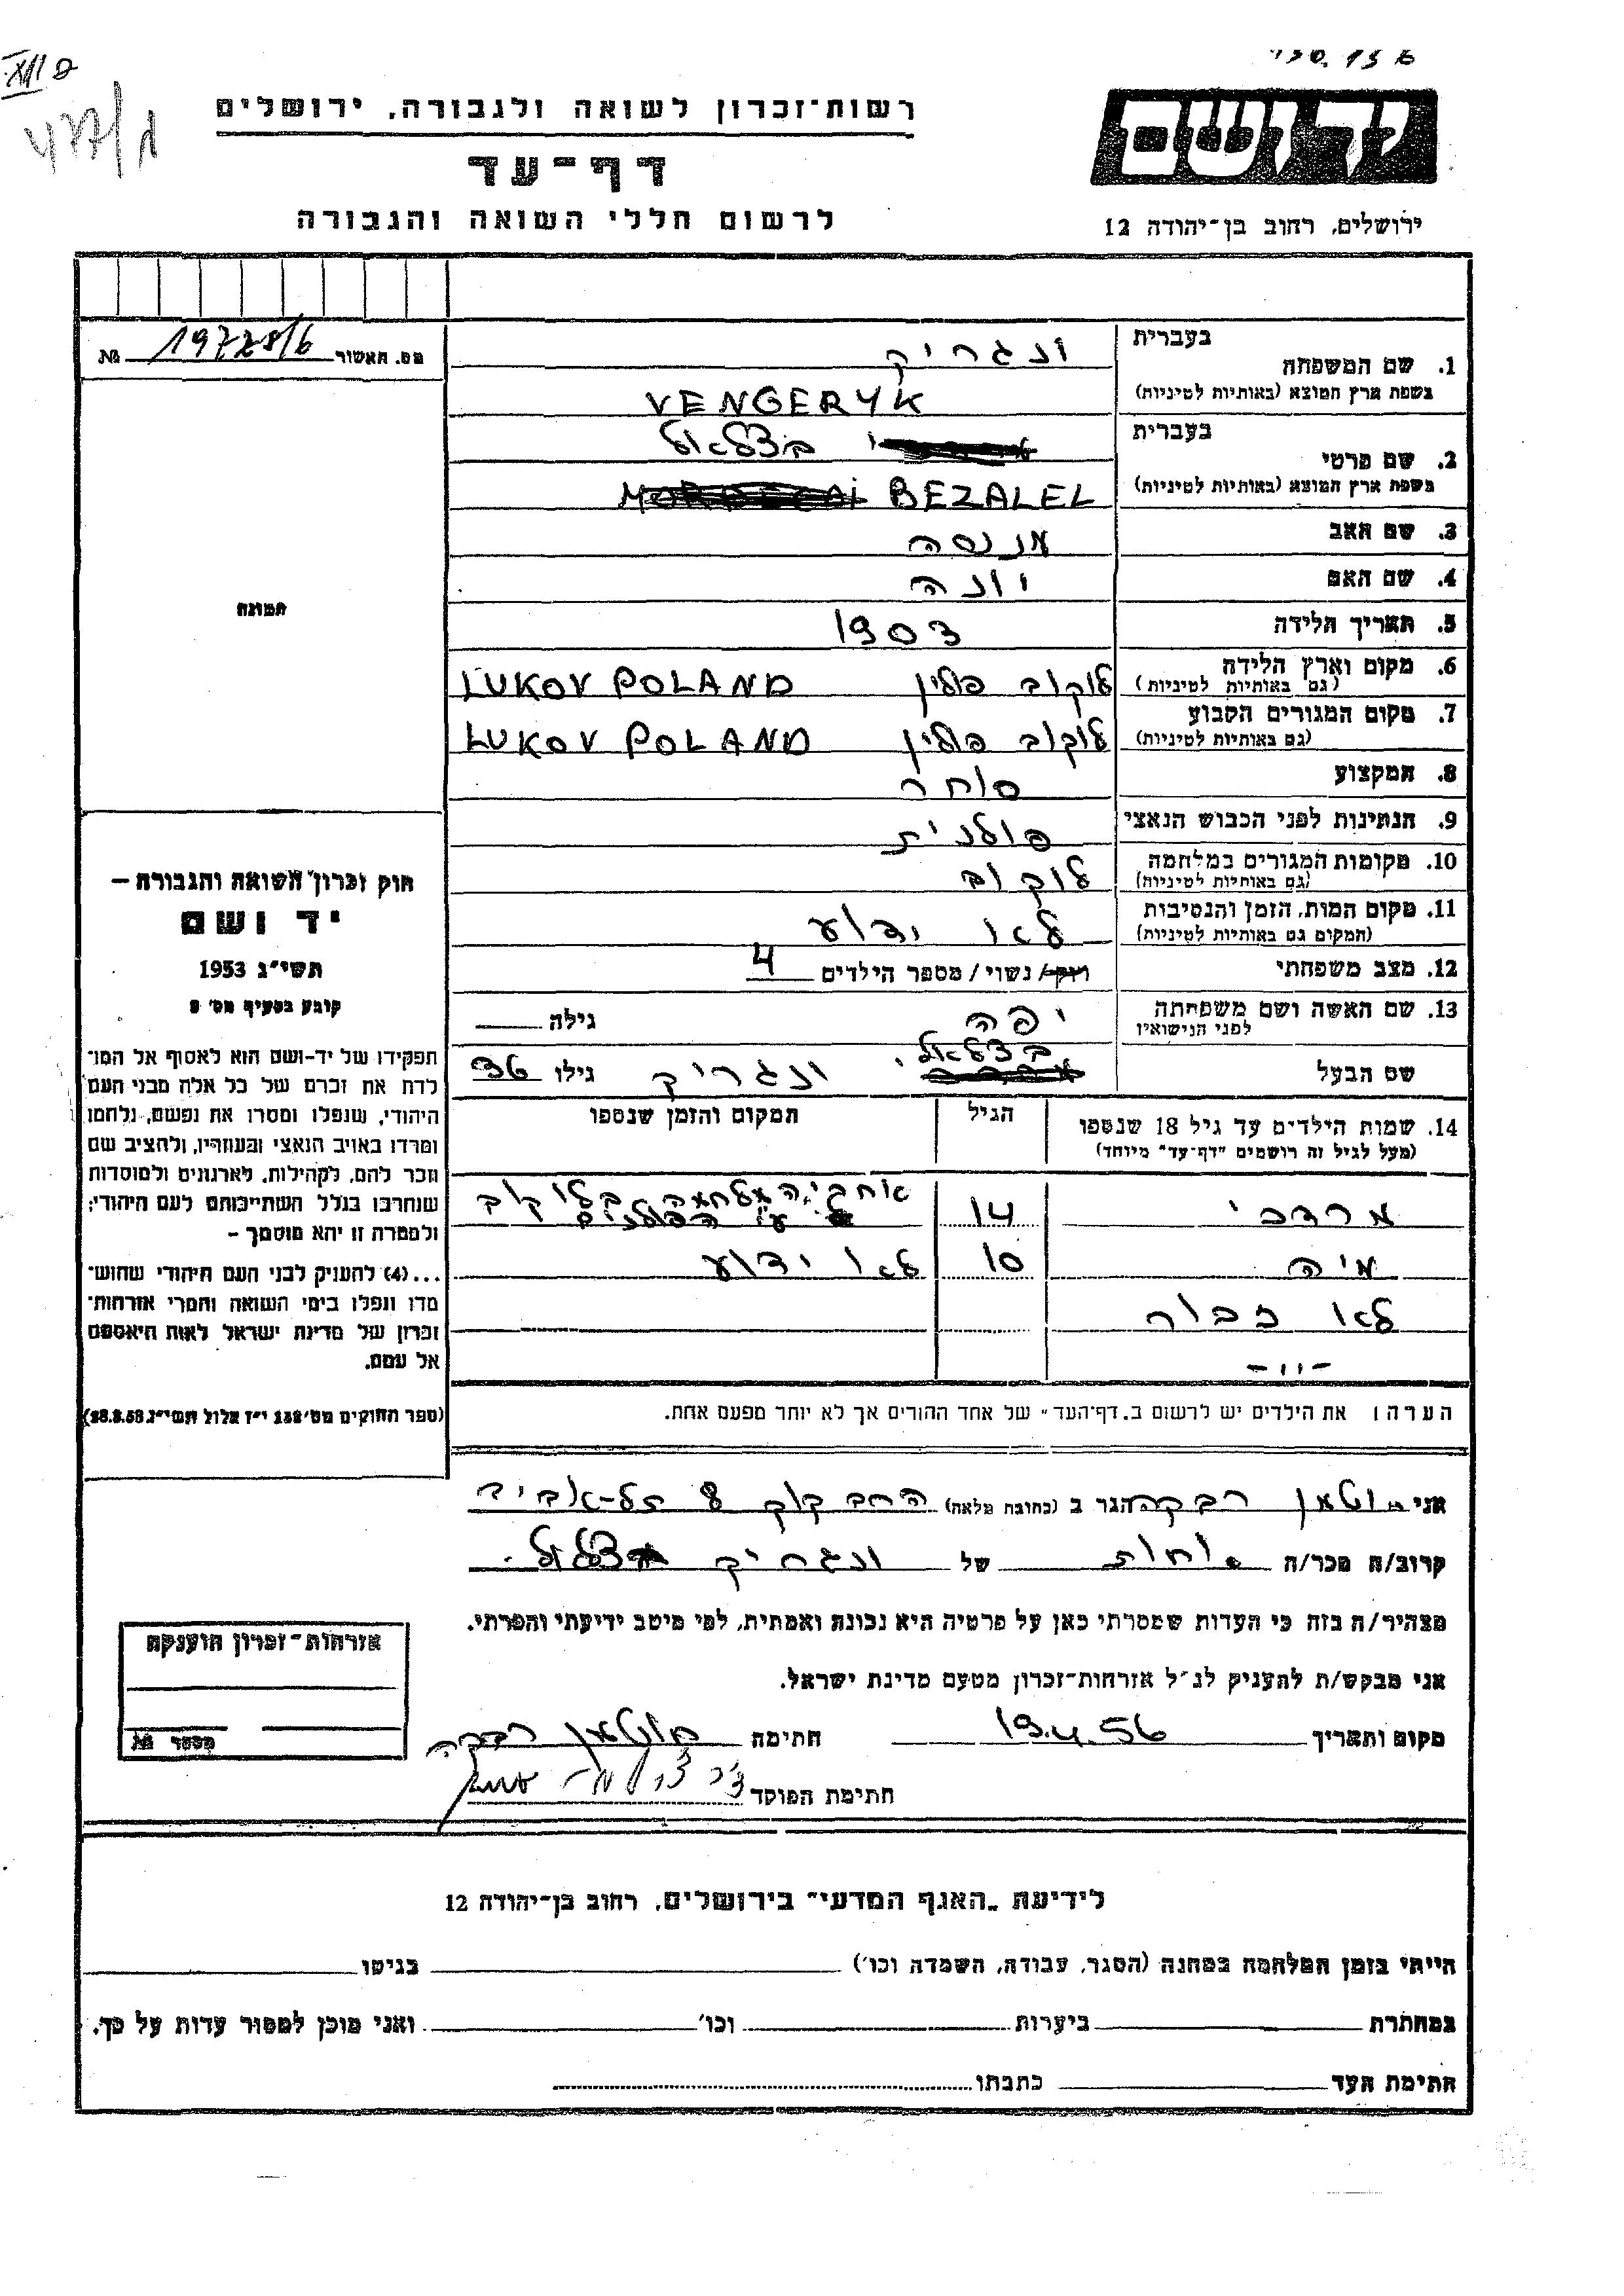 רשות-זכרון לשואה ולגבורה, ירושלים
דף-עד
לרשום חללי השואה והגבורה
ידושם
ירושלים, רחוב בן-יהודה 12
מס. האשור 19728/6 №
תמונה
1. שם המשפחה בעברית ונגריק
בשפת ארץ המוצא (באותיות לטיניות) VENGERYK
2. שם פרטי בעברית בצלאל
בשפת ארץ המוצא (באותיות לטיניות) BEZALEL
3. שם האב מנסה
4. שם האם יונה
5. תאריך הלידה 1903
6. מקום וארץ הלידה (גם באותיות לטיניות) לוקוב פולין LUKOV POLAND
7. מקום המגורים הקבוע (גם באותיות לטיניות) לוקוב פולין LUKOV POLAND
8. המקצוע סוחר
9. הנתינות לפני הכבוש הנאצי פולנית
10. מקומות המגורים במלחמה (גם באותיות לטיניות) לוקוב
11. מקום המות, הזמן והנסיבות (המקום גם באותיות לטיניות) לא ידוע
12. מצב משפחתי רוק/נשוי/מספר הילדים 4
13. שם האשה ושם משפחתה לפני הנישואין יפה גילה
שם הבעל בצלאל ונגריק גילו 36
14. שמות הילדים עד גיל 18 שנספו הגיל המקום והזמן שנספו
(מעל לגיל זה רושמים "דף-עד" מיוחד)
מרדכי 14 אחרי המלחמה בלוקוב
ע"י הפולנים
מיה 10 לא ידוע
לא זכור
-"-
הערה: את הילדים יש לרשום ב„דף-העד" של אחד ההורים אך לא יותר מפעם אחת.
חוק זכרון השואה והגבורה –
יד ושם
תשי"ג 1953
קובע בסעיף מס' 2
תפקידו של יד-ושם הוא לאסוף אל המו-
לדת את זכרם של כל אלה מבני העם
היהודי, שנפלו ומסרו את נפשם, נלחמו
ומרדו באויב הנאצי ובעוזריו, ולהציב שם
וזכר להם, לקהילות, לארגונים ולמוסדות
שנחרבו בגלל השתייכותם לעם היהודי;
ולמטרה זו יהא מוסמך –
...(4) להעניק לבני העם היהודי שהוש-
מדו ונפלו בימי השואה והמרי אזרחות-
זכרון של מדינת ישראל לאות היאספם
אל עמם.
(ספר החוקים מס' 132 י"ז אלול תשי"ג 28.8.53)
אני רבקה הגר ב (כתובת מלאה) הרב קוק 8 תל-אביב
קרוב/ה מכר/ה אחות של ונגריק בצלאל
מצהיר/ה בזה כי העדות שמסרתי כאן על פרטיה היא נכונה ואמתית, לפי מיטב ידיעתי והכרתי.
אני מבקש/ת להעניק לנ"ל אזרחות-זכרון מטעם מדינת ישראל.
מקום ותאריך 19.4.56 חתימה רבקה
חתימת הפוקד
אזרחות-זכרון הוענקה
מספר №
לידיעת „האגף המדעי" בירושלים, רחוב בן-יהודה 12
הייתי בזמן המלחמה במחנה (הסגר, עבודה, השמדה וכו') בגיטו
במחתרת ביערות וכו' ואני מוכן למסור עדות על כך.
חתימת העד כתבתו